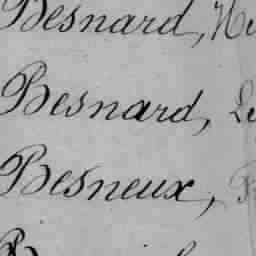 Besnard,
Besnard, Le
Besneux,